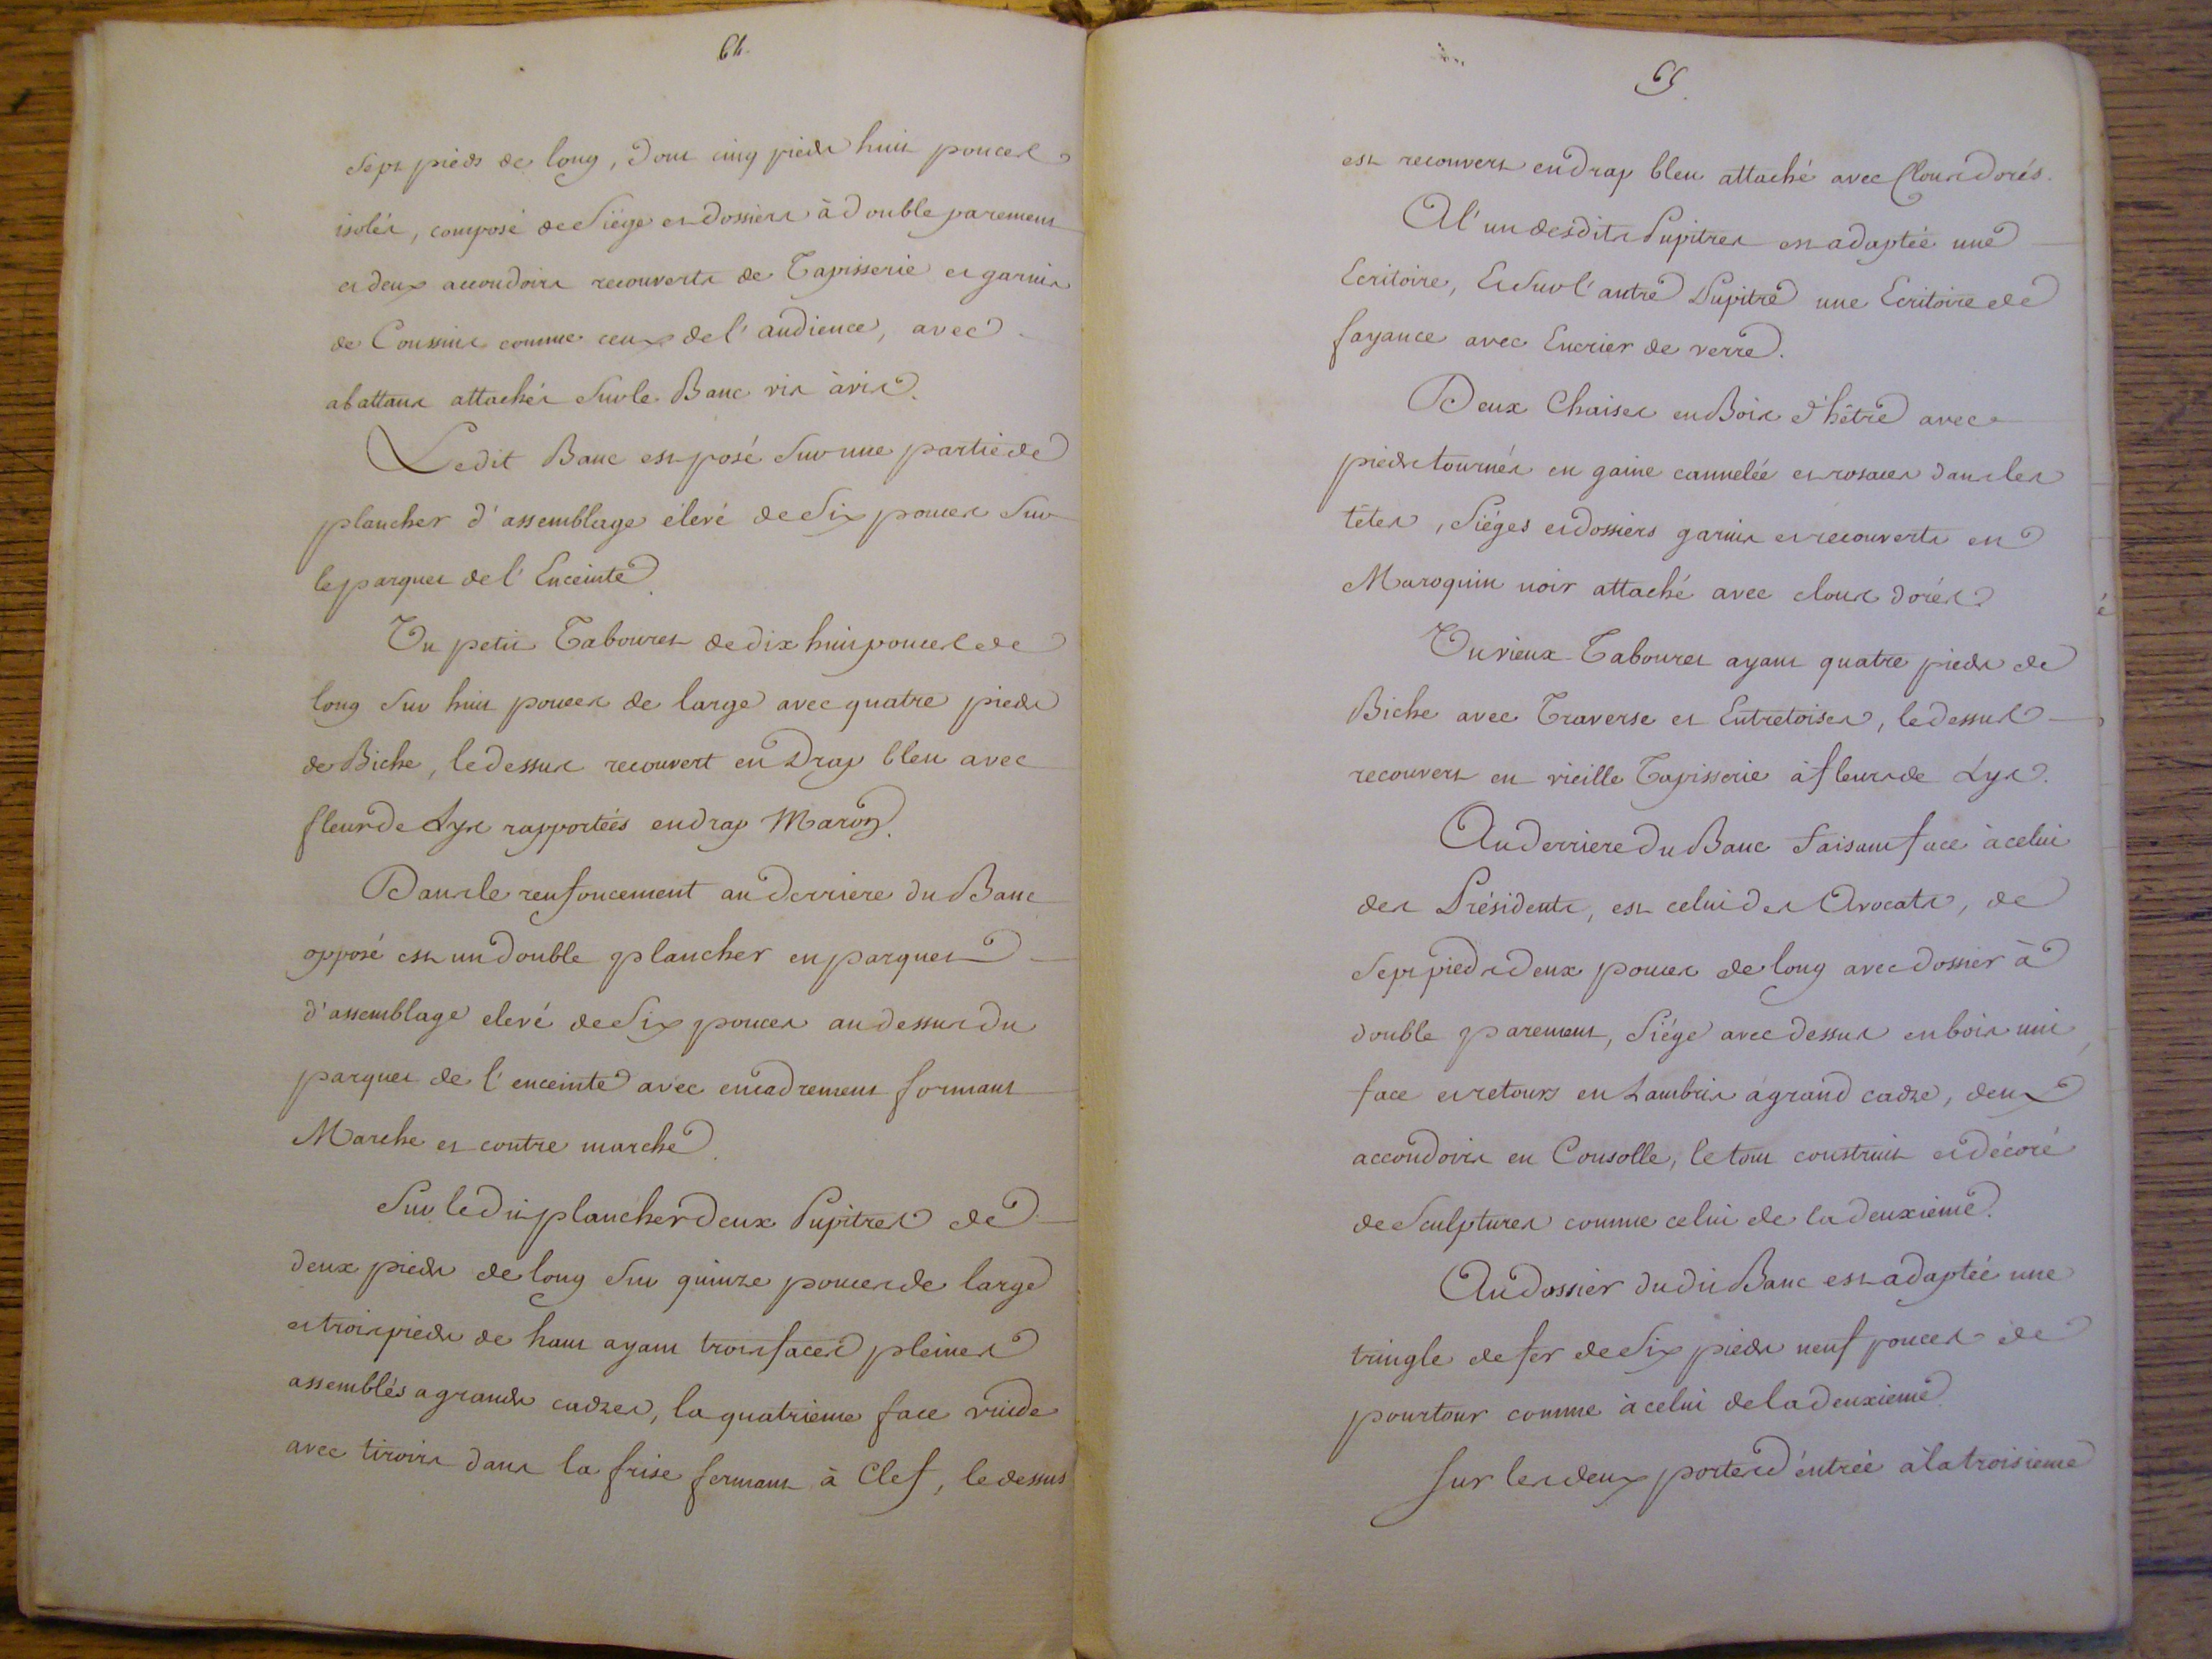 64.
Sept pieds de long, dont cinq pieds huit pouces
isolés, composé de Siége et dossiers à double parement
et deux accoudoirs recouverts de Tapisserie et garnis
de Coussins comme ceux de l'audience, avec
abattans attachés Sur le Banc vis à vis.
Ledit Banc est posé Sur une partie de
plancher d'assemblage élevé de Six pouces Sur
le parquet de l'Enceinte.
Un petit Tabouret de dix huit pouces de
long Sur huit pouces de large avec quatre pieds
de Biche, le dessus recouvert en Drap bleu avec
fleur de Lys rapportées en drap Maron.
Dans le renfoncement au derriere du Banc
opposé est un double plancher en parquet
d'assemblage elevé de Six pouces au dessus du
parquet de l'enceinte avec encadrement formant
Marche et contre marche.
Sur ledit plancher deux Pupitres de
deux pieds de long Sur quinze pouces de large
et trois pieds de haut ayant trois faces pleines
assemblés a grands cadres, la quatrieme face vuide
avec tiroirs dans la frise fermant à Clef, le dessus
65.
est recouvert en drap bleu attaché avec Clous dorés.
A l'un desdits Pupitres est adaptée une
Ecritoire, Et Sur l'autre Pupitre une Ecritoire de
fayance avec Encrier de verre.
Deux Chaises en Bois d'hêtre avec
pieds tournés en gaine cannelée et rosaces dans les
têtes, Siéges et dossiers garnis et recouverts en
Maroquin noir attaché avec clous dorés.
Un vieux Tabouret ayant quatre pieds de
Biche avec Traverse et Entretoises, le dessus
recouvert en vieille Tapisserie à fleurs de Lys.
Au derriere du Banc faisant face à celui
des Présidents, est celui des Avocats, de
Sept pieds deux pouces de long avec dossier à
double parement, Siége avec dessus en bois uni
face et retours en Lambris à grand cadre, deux
accoudoirs en Consolle, le tout construit et décoré
de Sculptures comme celui de la deuxieme.
Au dossier dudit Banc est adaptée une
tringle de fer de Six pieds neuf pouces de
pourtour comme à celui de la deuxieme
Sur les deux portes d'entrée à la troisieme